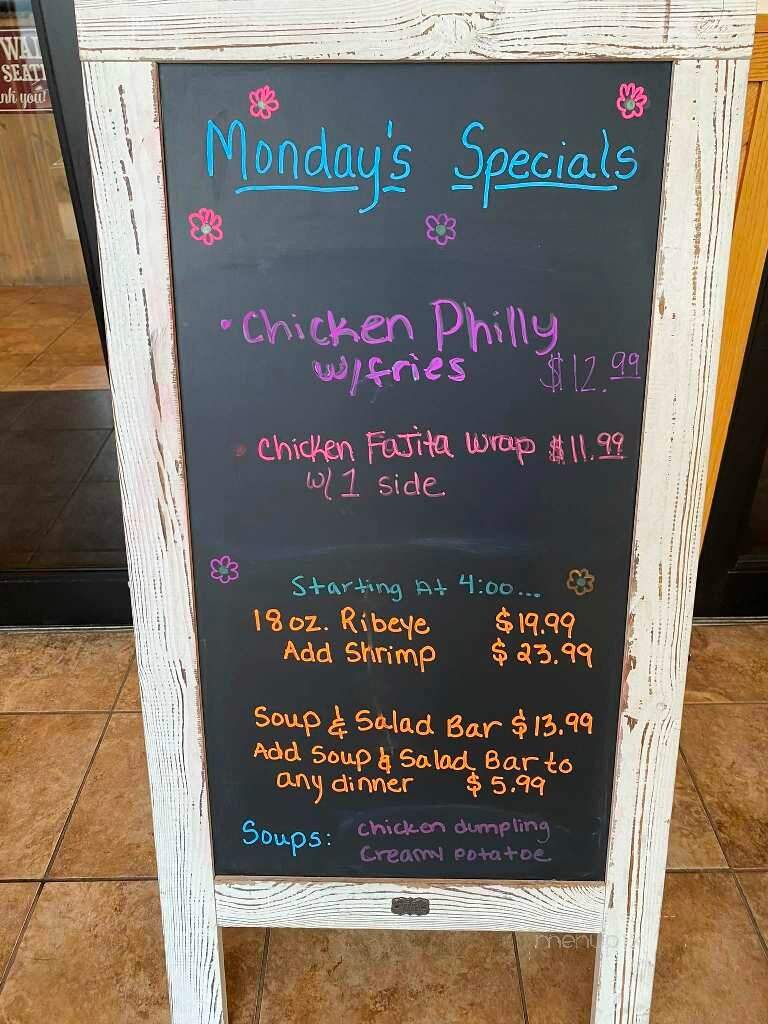 WAI
SEAT
nk you!
Monday's Specials
• Chicken Philly
w/fries $12.99
• Chicken Fajita Wrap $11.99
w/ 1 side
Starting At 4:00...
18 oz. Ribeye $19.99
Add Shrimp $23.99
Soup & Salad Bar $13.99
Add Soup & Salad Bar to
any dinner $5.99
Soups: chicken dumpling
Creamy potatoe